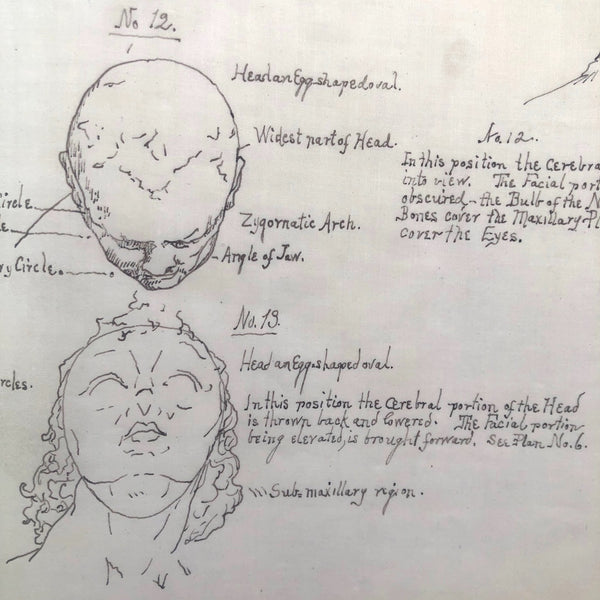 No 12.
Head an Egg-shaped oval.
Widest part of Head.
Circle
Zygomatic Arch.
Angle of Jaw.
ry Circle.
No. 12.
In this position the Cerebra
into view. The Facial port
obscured - the Bulb of the N
Bones cover the Maxillary Pl
cover the Eyes.
No. 13.
Head an Egg-shaped oval.
rcles.
In this position the Cerebral portion of the Head
is thrown back and lowered. The Facial portion
being elevated, is brought forward. See Plan No. 6.
Submaxillary region.